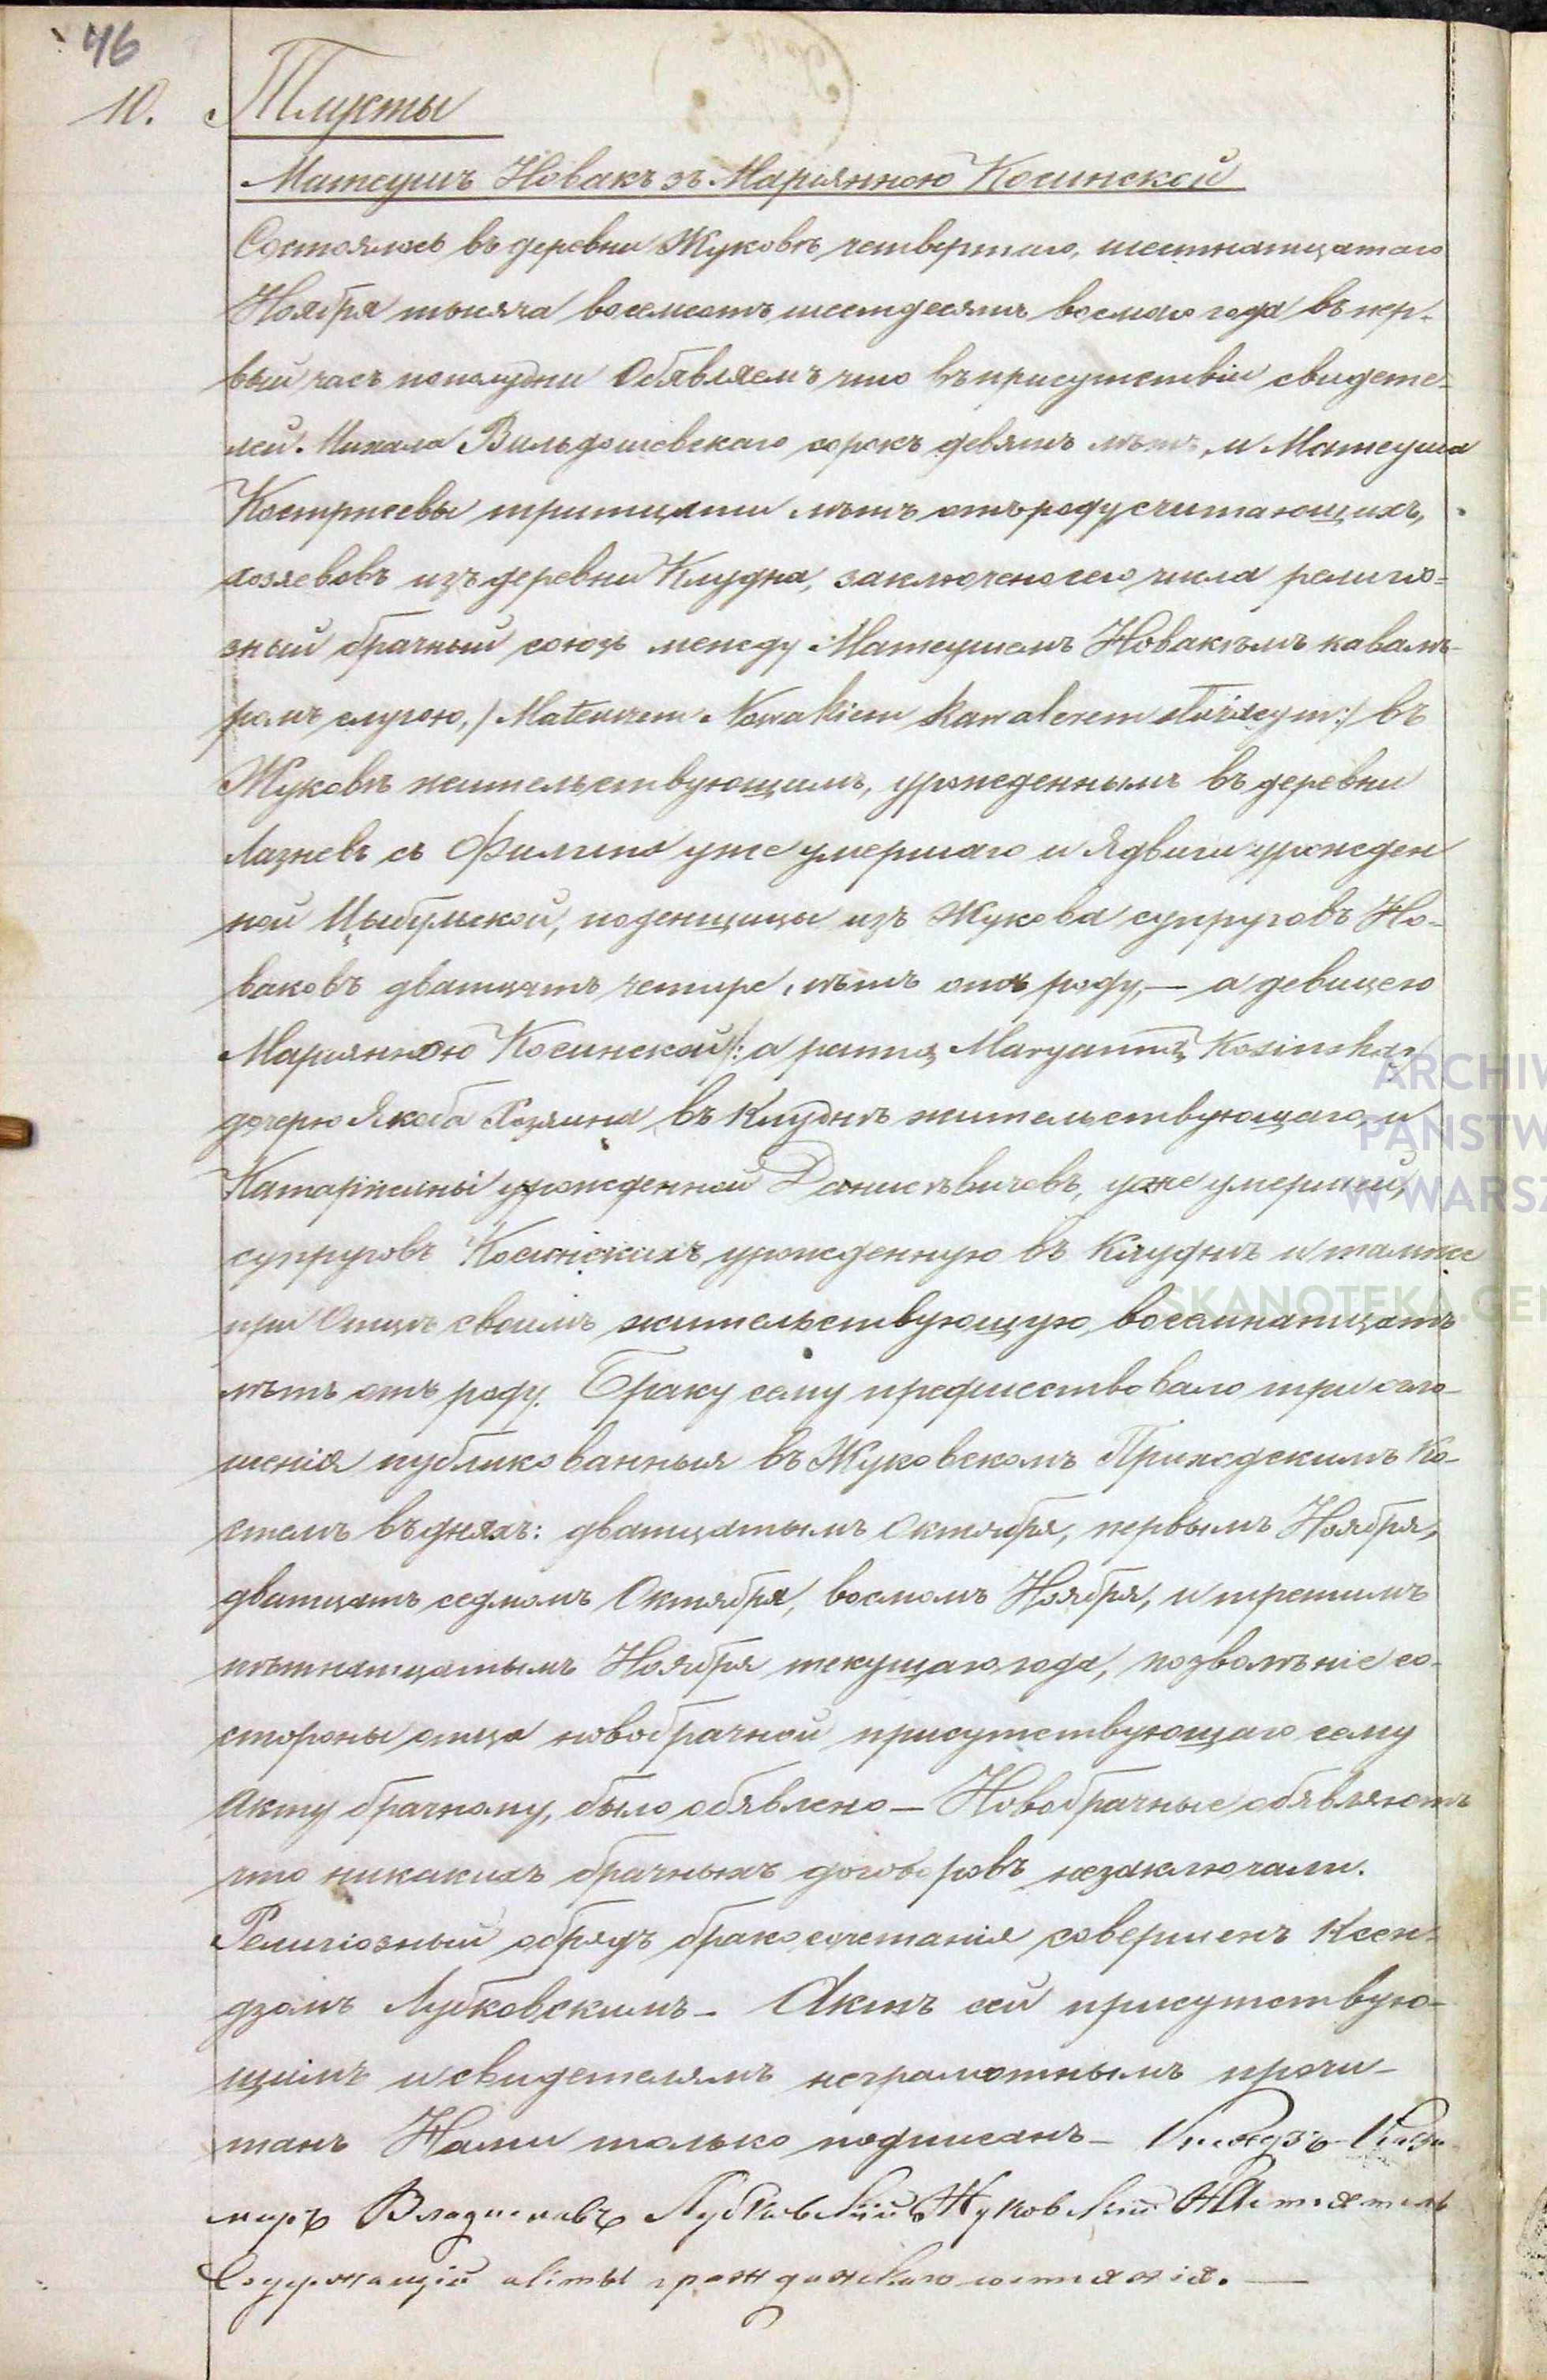 46
10. Тлусты
Матеушъ Новакъ зъ Маріянною Косинской
Состоялось въ деревни Жуковѣ четвертаго, шестнатцатаго
Ноября тысяча восемсотъ шестдесятъ восмаго года въ пер-
вый часъ пополудни Обявляемъ что въ присутствіи свидете-
лей. Михала Вильдошевскаго сорокъ девять лѣтъ, и Матеуша
тритцати лѣтъ отъ роду считающихъ,
хозяевовъ изъ деревни Клудна, заключено сего числа религіо-
зный брачный союзъ между Матеушемъ Новакѣмъ кавалѣ-
ромъ слугою, /Mateuszem Nowakiem kawalerem służącym:/ въ
Жуковѣ жительствующимъ, урожденнымъ въ деревни
Лазневъ съ Филипа уже умершаго и Ядвиги урожден
ной Цыбульской, поденщицы изъ Жукова супруговъ Но-
ваковъ дватцать четыре лѣтъ отъ роду, — а девицею
Маріянною Косинской /: a panną Maryanną Kosinską /
дочерю Якоба Хозяина въ Клуднѣ жительствующаго, и
Катаржины урожденной Данисѣвичовъ, уже умершей,
супруговъ Косинскихъ урожденную въ Клуднѣ и тамже
при Отцѣ своимъ жительствующую восемнатцатъ
лѣтъ отъ роду. Браку сему предшествовало три огло-
шенія публикованныя въ Жуковскомъ Приходскимъ Ко-
стелъ въ дняхъ: дватцатымъ Октября, первымъ Ноября,
дватцать седмомъ Октября, восмомъ Ноября, и третимъ
пѣтнатцатымъ Ноября текущаго года, позволѣніе со-
стороны отца новобрачной присутствующаго сему
Акту брачному, было обявлено — Новобрачные обявляютъ
что никакихъ брачныхъ договоровъ незаключали.
Религіозный обрядъ бракосочетанія совершенъ Ксен-
дзомъ Лубковскимъ — Актъ сей присутствую-
щимъ и свидетелямъ неграмотнымъ прочи-
танъ Нами только подписанъ — Ксендзъ Кази
миръ Владиславъ Лубковскій Жуковскій Настоятель
Содержащій акты гражданскаго состоянія. —
ARCHIW
PAŃSTW
W WARSZ
SKANOTEKA.GEN